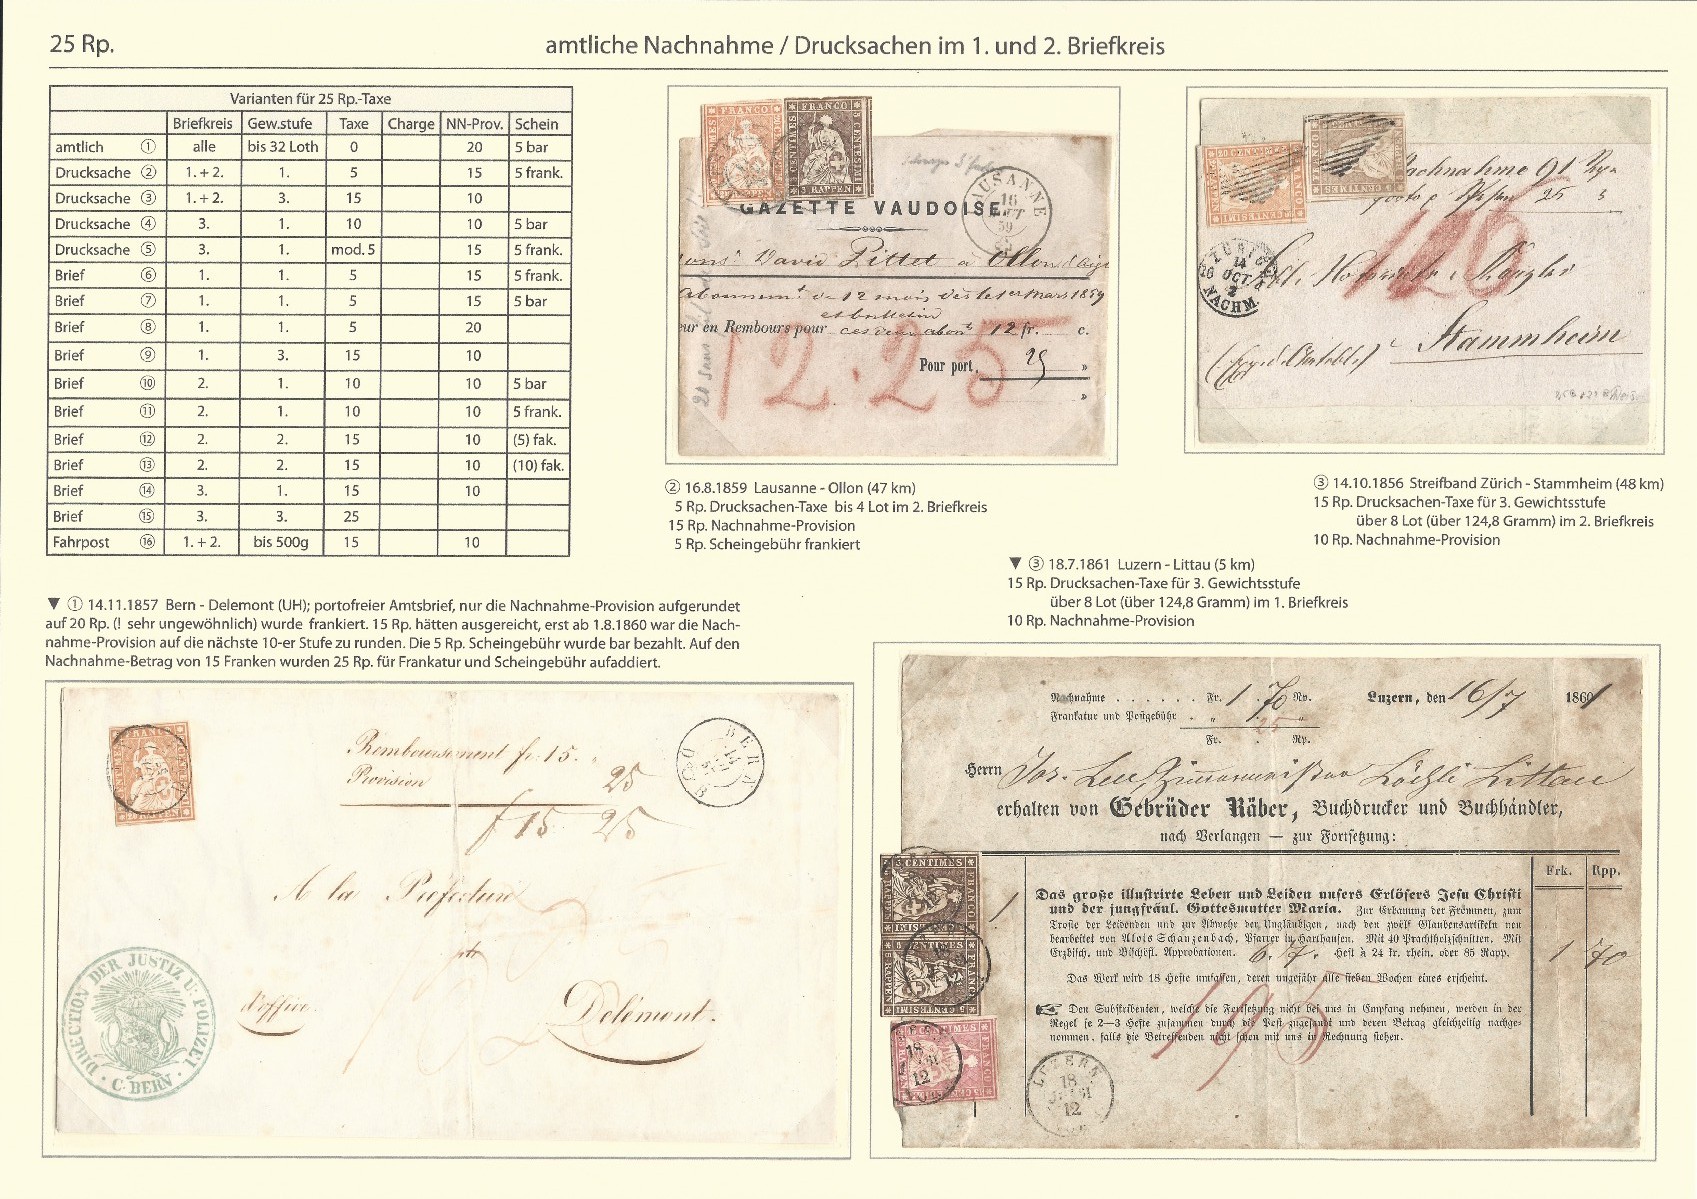 25 Rp.
amtliche Nachnahme / Drucksachen im 1. und 2. Briefkreis
Varianten für 25 Rp.-Taxe
Briefkreis Gew.stufe Taxe Charge NN-Prov. Schein
amtlich ① alle bis 32 Loth 0 20 5 bar
Drucksache ② 1. + 2. 1. 5 15 5 frank.
Drucksache ③ 1. + 2. 3. 15 10
Drucksache ④ 3. 1. 10 10 5 bar
Drucksache ⑤ 3. 1. mod. 5 15 5 frank.
Brief ⑥ 1. 1. 5 15 5 frank.
Brief ⑦ 1. 1. 5 15 5 bar
Brief ⑧ 1. 1. 5 20
Brief ⑨ 1. 3. 15 10
Brief ⑩ 2. 1. 10 10 5 bar
Brief ⑪ 2. 1. 10 10 5 frank.
Brief ⑫ 2. 2. 15 10 (5) fak.
Brief ⑬ 2. 2. 15 10 (10) fak.
Brief ⑭ 3. 1. 15 10
Brief ⑮ 3. 3. 25
Fahrpost ⑯ 1. + 2. bis 500g 15 10
FRANCO
FRANCO
5 RAPPEN
GAZETTE VAUDOISE
LAUSANNE
16
59
David Pittet a Ollon d'Aigle
Abonnemt de 12 mois dès le 1er Mars 1859
et bulletin
eur en Rembours pour ces deux abonts 12 fr. c.
Pour port, 25 »
»
12.25
② 16.8.1859 Lausanne - Ollon (47 km)
5 Rp. Drucksachen-Taxe bis 4 Lot im 2. Briefkreis
15 Rp. Nachnahme-Provision
5 Rp. Scheingebühr frankiert
Nachnahme 91 Rp
25
116
ZÜRICH
14
OCT
NACHM.
Stammheim
③ 14.10.1856 Streifband Zürich - Stammheim (48 km)
15 Rp. Drucksachen-Taxe für 3. Gewichtsstufe
über 8 Lot (über 124,8 Gramm) im 2. Briefkreis
10 Rp. Nachnahme-Provision
▼ ③ 18.7.1861 Luzern - Littau (5 km)
15 Rp. Drucksachen-Taxe für 3. Gewichtsstufe
über 8 Lot (über 124,8 Gramm) im 1. Briefkreis
10 Rp. Nachnahme-Provision
▼ ① 14.11.1857 Bern - Delemont (UH); portofreier Amtsbrief, nur die Nachnahme-Provision aufgerundet
auf 20 Rp. (! sehr ungewöhnlich) wurde frankiert. 15 Rp. hätten ausgereicht, erst ab 1.8.1860 war die Nach-
nahme-Provision auf die nächste 10-er Stufe zu runden. Die 5 Rp. Scheingebühr wurde bar bezahlt. Auf den
Nachnahme-Betrag von 15 Franken wurden 25 Rp. für Frankatur und Scheingebühr aufaddiert.
BERN
14
Remboursement fr. 15. "
Provision 25
f 15. 25
A la Préfecture
de
d'office.
Delémont.
DIRECTION DER JUSTIZ U: POLIZEI
· C. BERN ·
Nachnahme . . . . . . Fr. 1. 70 Rp. Luzern, den 16/7 1861
Frankatur und Postgebühr . " . 25 "
Fr. . Rp.
Herrn Jos. Zimmermeister Littau
erhalten von Gebrüder Räber, Buchdrucker und Buchhändler,
nach Verlangen — zur Fortsetzung:
Frk. Rpp.
1 Das große illustrirte Leben und Leiden unsers Erlösers Jesu Christi
und der jungfräul. Gottesmutter Maria. Zur Erbauung der Frommen, zum
Troste der Leidenden und zur Abwehr der Ungläubigen, nach den zwölf Glaubensartikeln neu
bearbeitet von Alois Schauzenbach, Pfarrer in Harthausen. Mit 40 Prachtholzschnitten. Mit
Erzbisch. und Bischöfl. Approbationen. 6. 7. Heft à 24 kr. rhein. oder 85 Rapp. 1 70
Das Werk wird 18 Hefte umfassen, deren ungefähr alle sieben Wochen eines erscheint.
☛ Den Subskribenten, welche die Fortsetzung nicht bei uns in Empfang nehmen, werden in der
Regel je 2—3 Hefte zusammen durch die Post zugesandt und deren Betrag gleichzeitig nachge-
nommen, falls die Betreffenden nicht schon mit uns in Rechnung stehen.
195
5 CENTIMES
FRANCO
5 RAPPEN
5 CENTESIMI
18
12
LUZERN
18
12